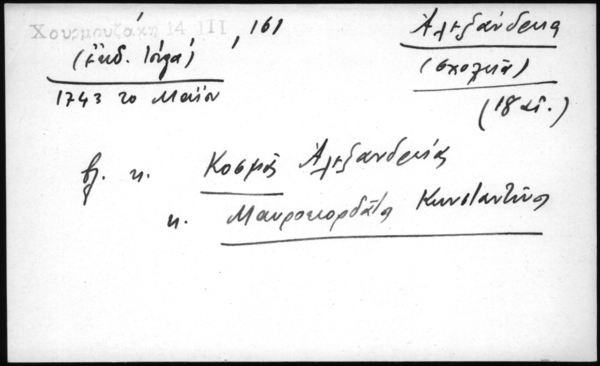 Χουρμουζάκη 14 III, 161
(ἔκδ. Ἰόργά)
1743 το Μαΐου
Ἀλεξάνδρεια
(σχολεῖα)
(18 αἰ.)
βλ. κ. Κοσμᾶς Ἀλεξανδρείας
κ. Μαυροκορδᾶτος Κωνσταντῖνος